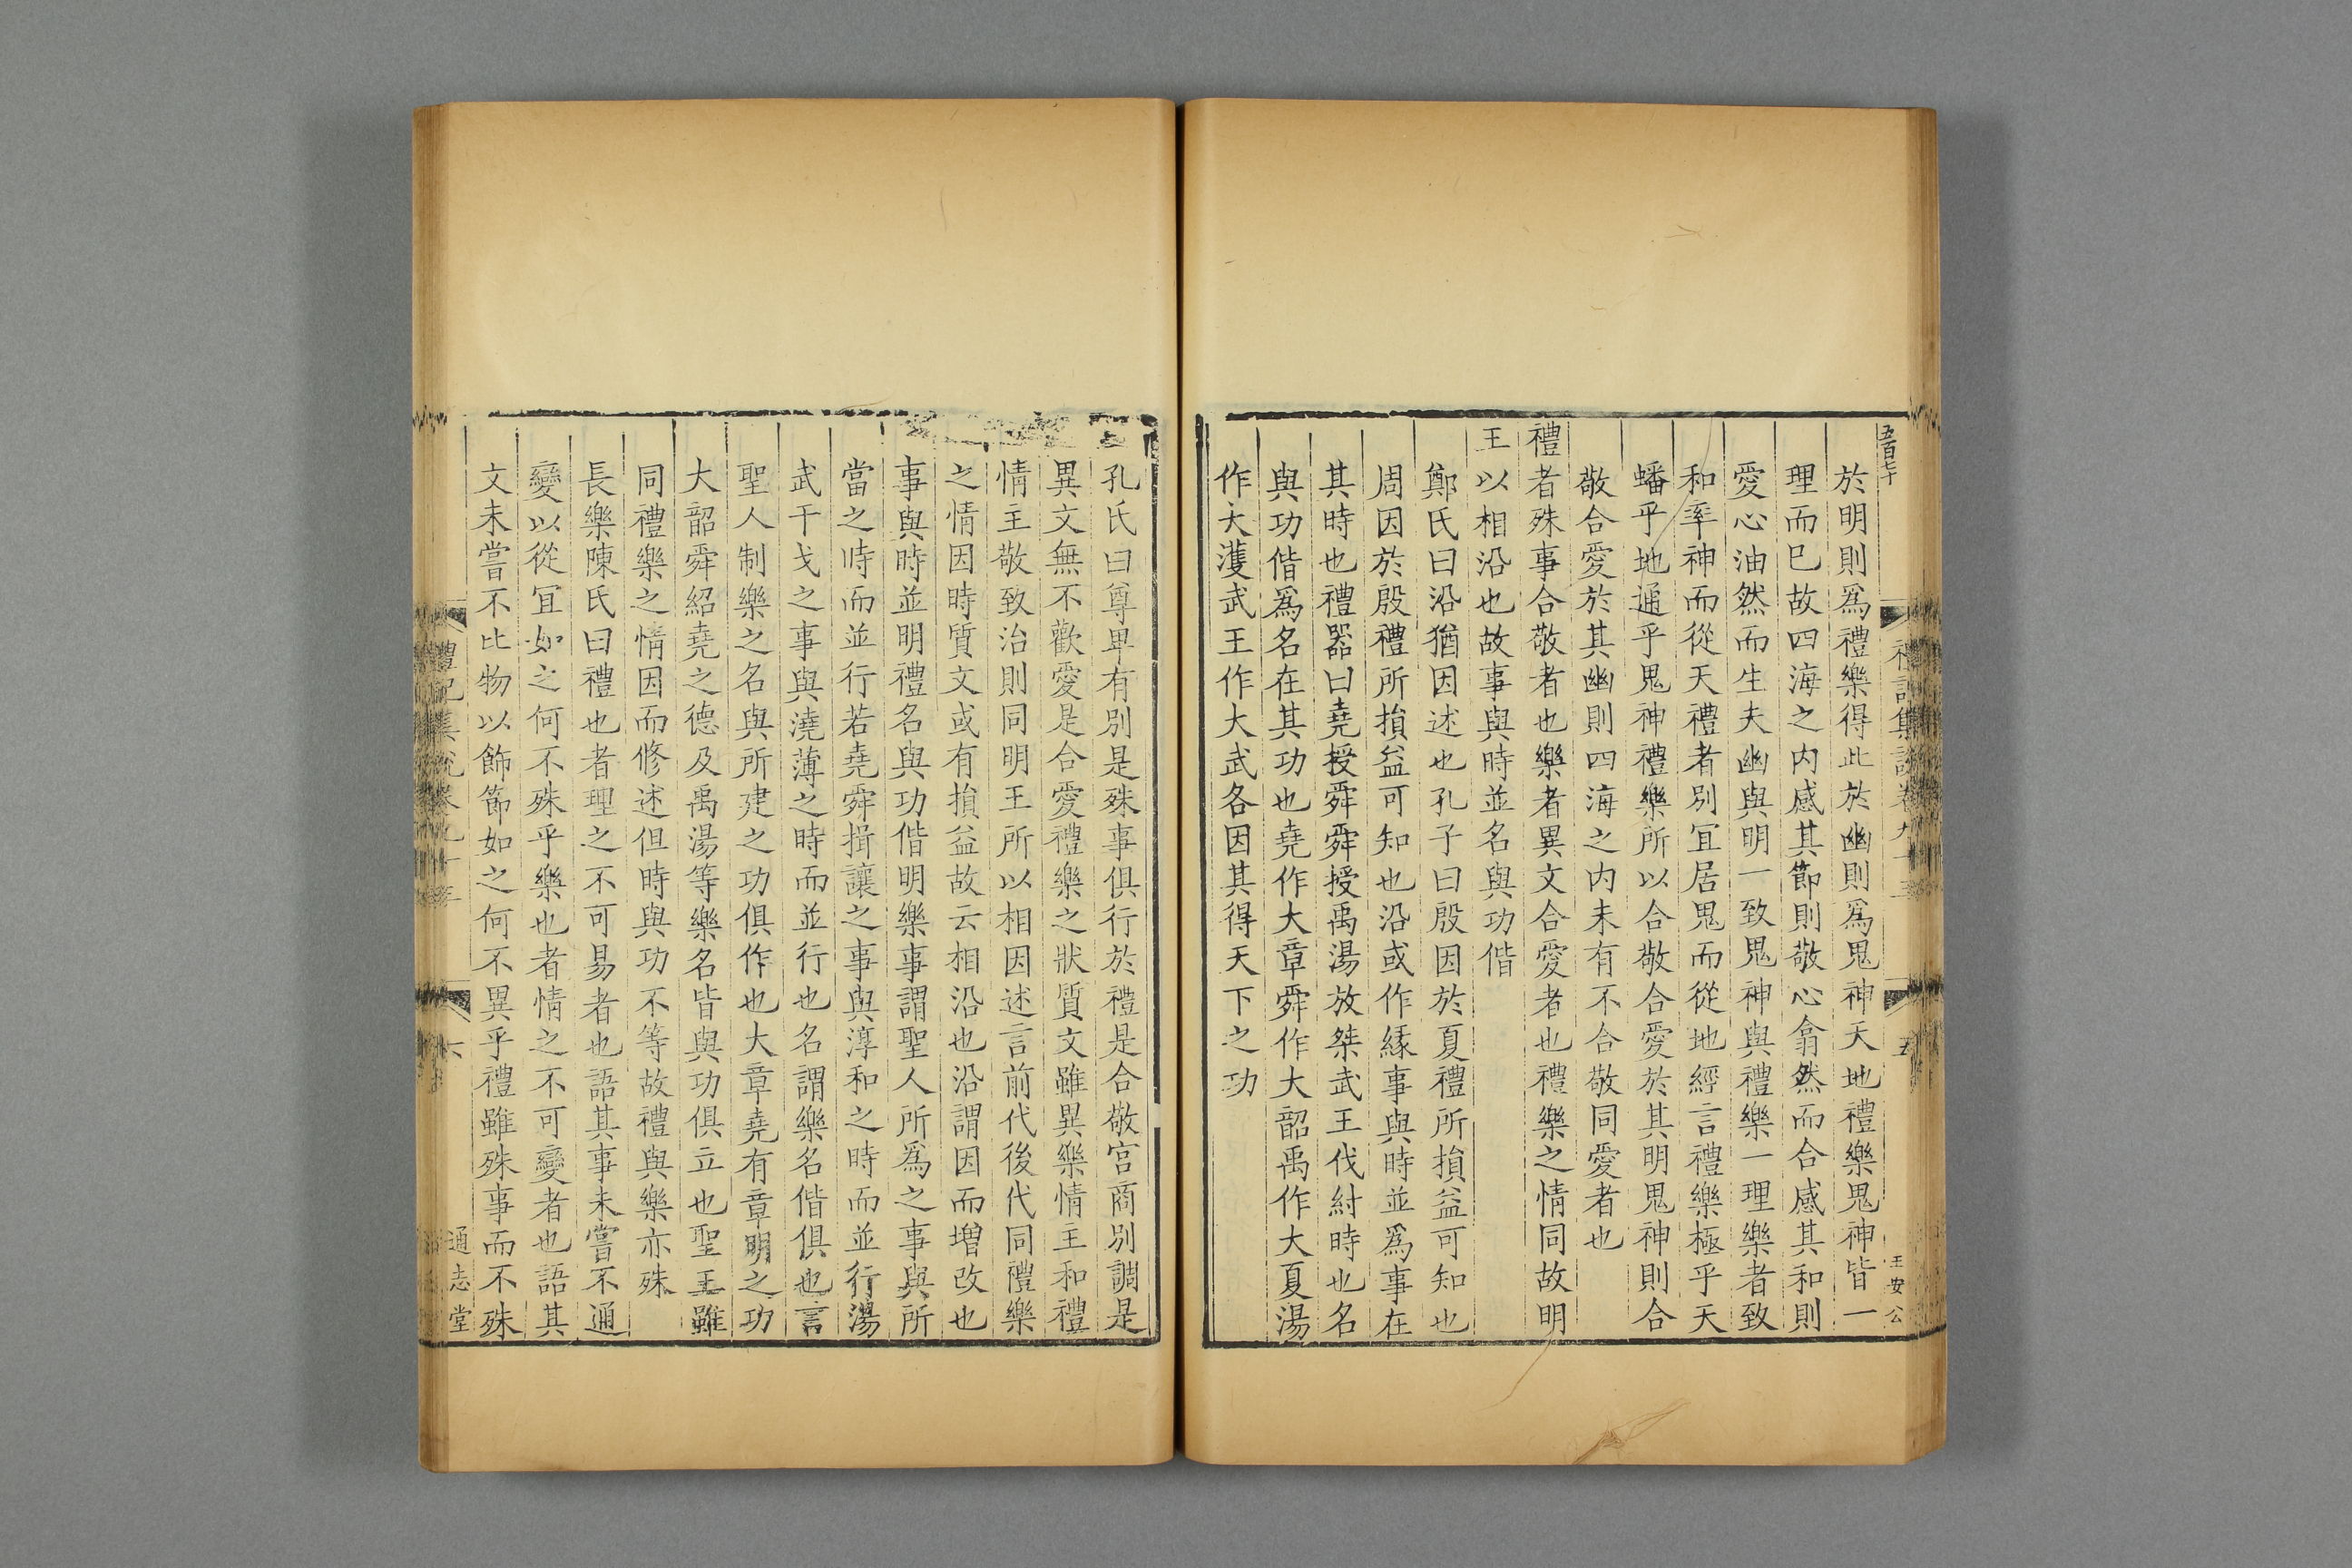 五百七十
禮記集說卷九十三
五
王安公
於明則爲禮樂得此於幽則爲鬼神天地禮樂鬼神皆一
理而巳故四海之内感其節則敬心翕然而合感其和則
愛心油然而生夫幽與明一致鬼神與禮樂一理樂者致
和率神而從天禮者別宜居鬼而從地經言禮樂極乎天
蟠乎地通乎鬼神禮樂所以合敬合愛於其明鬼神則合
敬合愛於其幽則四海之内未有不合敬同愛者也
禮者殊事合敬者也樂者異文合愛者也禮樂之情同故明
王以相沿也故事與時並名與功偕
鄭氏曰沿猶因述也孔子曰殷因於夏禮所損益可知也
周因於殷禮所損益可知也沿或作緣事與時並爲事在
其時也禮器曰堯授舜舜授禹湯放桀武王伐紂時也名
與功偕爲名在其功也堯作大章舜作大韶禹作大夏湯
作大濩武王作大武各因其得天下之功
孔氏曰尊卑有別是殊事俱行於禮是合敬宮商別調是
異文無不歡愛是合愛禮樂之狀質文雖異樂情主和禮
情主敬致治則同明王所以相因述言前代後代同禮樂
之情因時質文或有損益故云相沿也沿謂因而增改也
事與時並明禮名與功偕明樂事謂聖人所爲之事與所
當之時而並行若堯舜揖讓之事與淳和之時而並行湯
武干戈之事與澆薄之時而並行也名謂樂名偕俱也言
聖人制樂之名與所建之功俱作也大章堯有章明之功
大韶舜紹堯之德及禹湯等樂名皆與功俱立也聖王雖
同禮樂之情因而修述但時與功不等故禮與樂亦殊
長樂陳氏曰禮也者理之不可易者也語其事未嘗不通
變以從宜如之何不殊乎樂也者情之不可變者也語其
文未嘗不比物以飾節如之何不異乎禮雖殊事而不殊
禮記集說卷九十三
六
通志堂